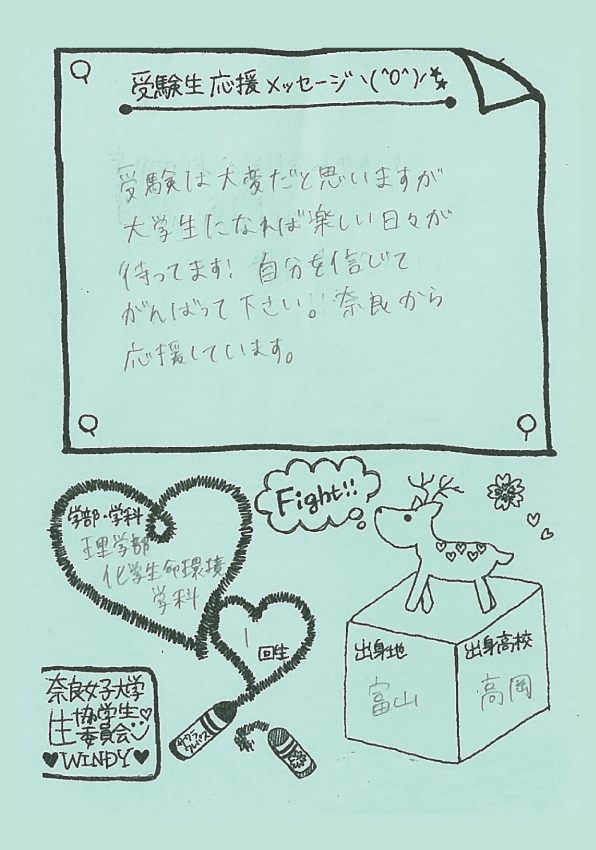 受験生応援メッセージヽ(^O^)ノ
受験は大変だと思いますが
大学生になれば楽しい日々が
待ってます! 自分を信じて
がんばって下さい。奈良から
応援しています。
Fight!!
学部・学科
理学部
化学生命環境
学科
1回生
出身地
富山
出身高校
高岡
奈良女子大学
生協学生
委員会
WINDY
サクラ
クレパス